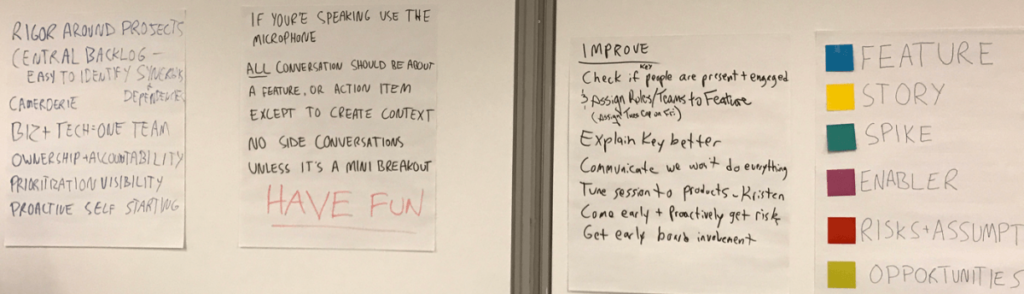 RIGOR AROUND PROJECTS
CENTRAL BACKLOG -
EASY TO IDENTIFY SYNERGYS
+
DEPENDENCIE
CAMERDERIE
BIZ + TECH = ONE TEAM
OWNERSHIP + ACCOUNTABILITY
PRIORITIZATION VISIBILITY
PROACTIVE SELF STARTING
IF YOU'RE SPEAKING USE THE
MICROPHONE
ALL CONVERSATION SHOULD BE ABOUT
A FEATURE, OR ACTION ITEM
EXCEPT TO CREATE CONTEXT
NO SIDE CONVERSATIONS
UNLESS IT'S A MINI BREAKOUT
HAVE FUN
IMPROVE
KEY
Check if people are present + engaged
Assign Roles/Teams to Feature
(Assign Team Cap on
Explain Key better
Communicate we won't do everything
Tune session to products - Kristen
Come early + Proactively get risk
Get early board involvement
FEATURE
STORY
SPIKE
ENABLER
RISKS + ASSUMPT
OPPORTUNITIES